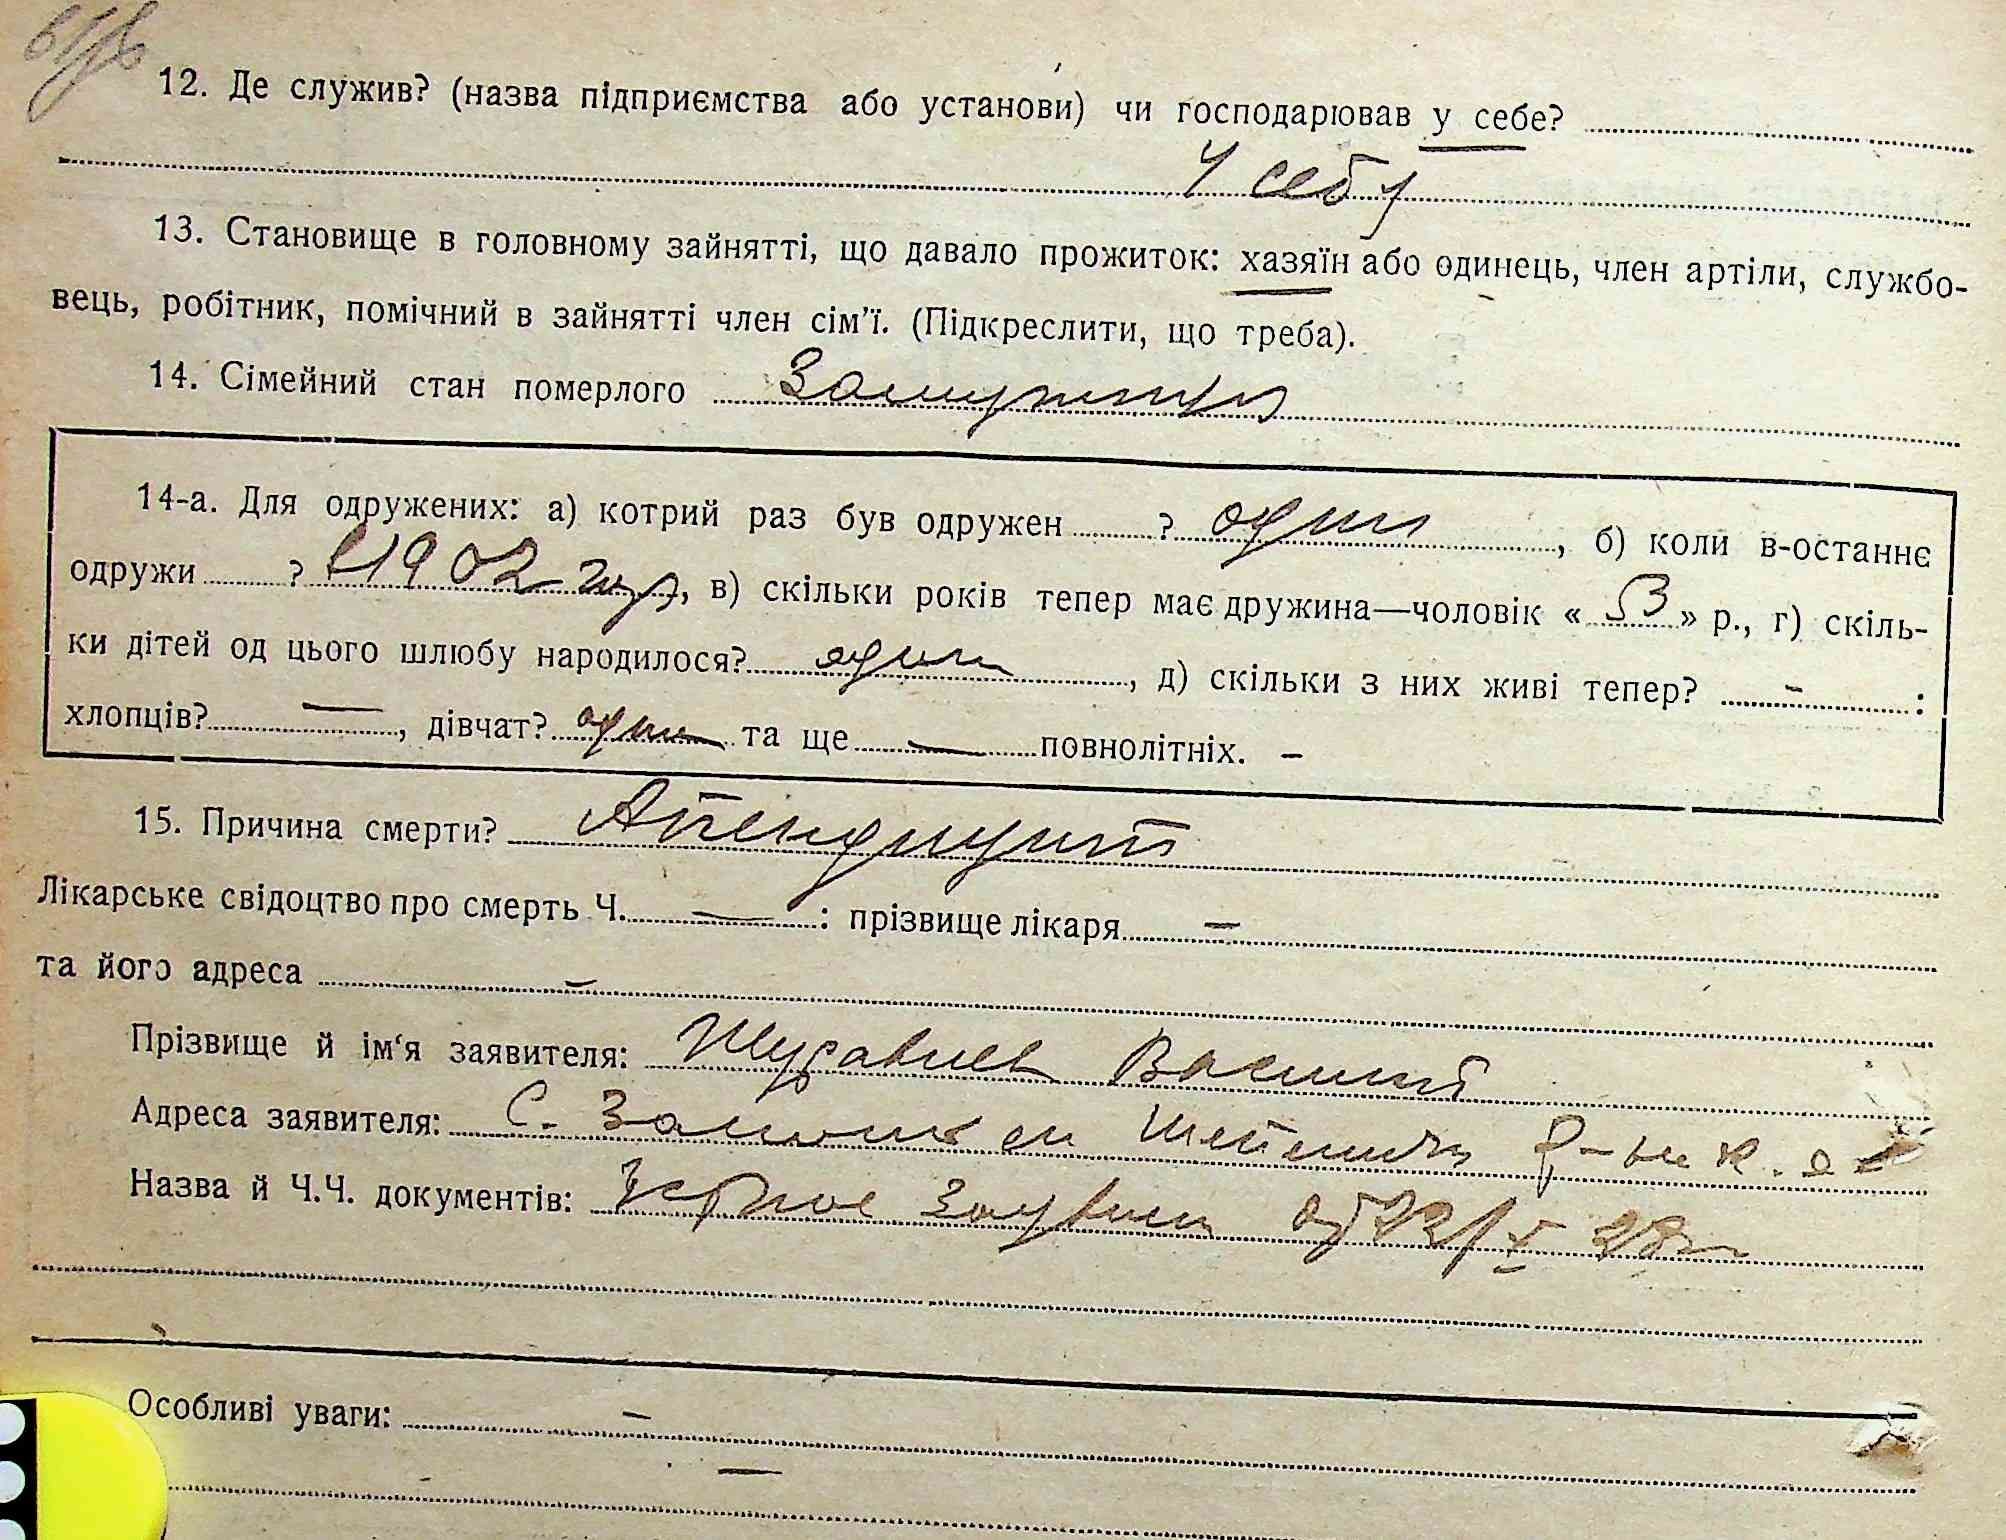 12. Де служив? (назва підприємства або установи) чи господарював у себе?
У себя
13. Становище в головному зайнятті, що давало прожиток: хазяїн або одинець, член артіли, службо-
вець, робітник, помічний в зайнятті член сім'ї. (Підкреслити, що треба).
14. Сімейний стан померлого Замужняя
14-а. Для одружених: а) котрий раз був одружен ? один, б) коли в-останнє
одружи ? в 1902 году, в) скільки років тепер має дружина—чоловік «53» р., г) скіль-
ки дітей од цього шлюбу народилося? один, д) скільки з них живі тепер? – :
хлопців? —, дівчат? один та ще — повнолітніх. –
15. Причина смерти? Апендицит
Лікарське свідоцтво про смерть Ч. — : прізвище лікаря –
та його адреса –
Прізвище й ім'я заявителя: Журавлев Василий
Адреса заявителя: С. р-на
Назва й Ч.Ч. документів: 28
Особливі уваги: –
—